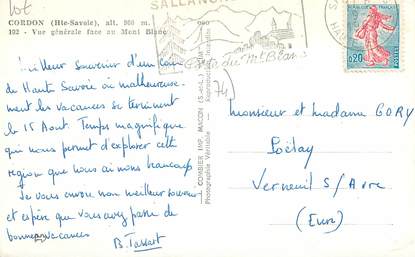 CORDON (Hte-Savoie), alt. 860 m.
102 - Vue générale face au Mont Blanc
SALLANCHES
Porte du Mt Blanc
0,20
74
Meilleur Souvenir d'un coin
de Haute Savoie où malheureuse-
ment les vacances se terminent
le 15 Aout. Temps magnifique
qui nous permet d'explorer cette
region que nous aimons beaucoup
Je vous envoie mon meilleur souvenir
et espère que vous avez passé de
bonnes vacances
B. Tassart
COMBIER IMP. MACON (S.-&-L.)
Photographie Véritable
Reproduction interdite
Monsieur et madame GORY
Verneuil S/Avre
(Eure)